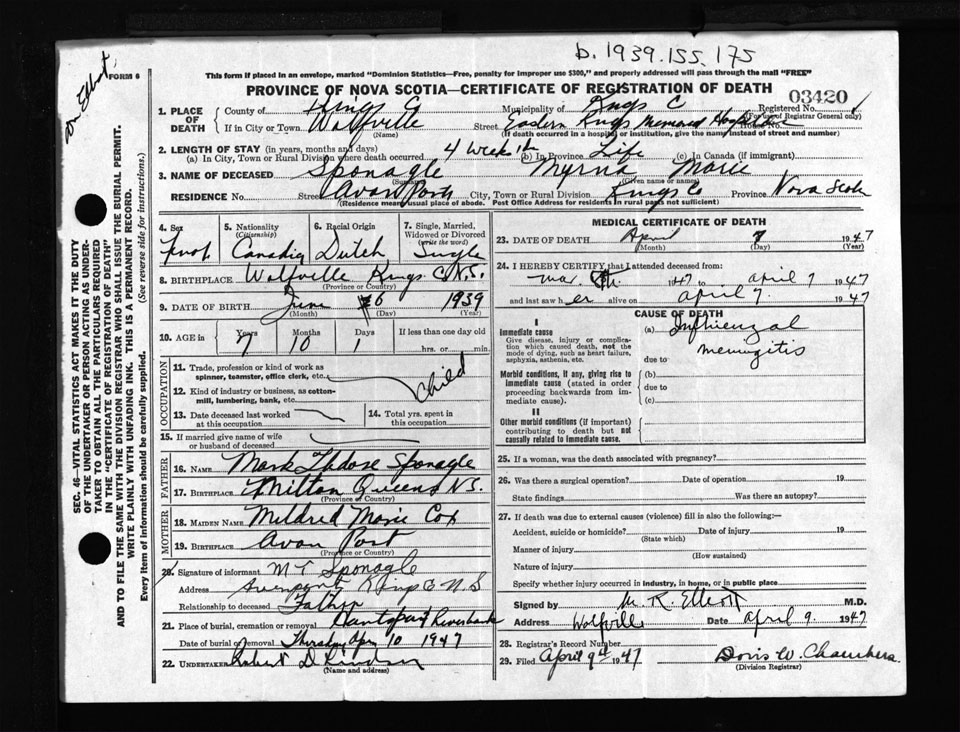 b. 1939.155.175
FORM 6
This form if placed in an envelope, marked "Dominion Statistics—Free, penalty for improper use $300," and properly addressed will pass through the mail "FREE"
PROVINCE OF NOVA SCOTIA—CERTIFICATE OF REGISTRATION OF DEATH
03420
1. PLACE OF DEATH County of Kings Co Municipality of Kings C Registered No.
(For use of Registrar General only)
If in City or Town Wolfville Street Eastern Kings Memorial Hospital House No.
(Name) (If death occurred in a hospital or institution, give the name instead of street and number)
2. LENGTH OF STAY (in years, months and days)
(a) In City, Town or Rural Division where death occurred 4 weeks (b) In Province Life (c) In Canada (if immigrant)
3. NAME OF DECEASED Sponagle Myrna Marie
(Surname) (Given name or names)
RESIDENCE No. Street Avon Port City, Town or Rural Division Kings Co Province Nova Scotia
(Residence means usual place of abode. Post Office Address for residents in rural parts not sufficient)
4. Sex
5. Nationality (Citizenship) Canadian
6. Racial Origin Dutch
7. Single, Married, Widowed or Divorced (write the word) Single
8. BIRTHPLACE Wolfville Kings C N.S.
(Province or Country)
9. DATE OF BIRTH June 6 1939
(Month) (Day) (Year)
10. AGE in Years 7 Months 10 Days 1 If less than one day old hrs. or min.
OCCUPATION
11. Trade, profession or kind of work as spinner, teamster, office clerk, etc. Child
12. Kind of industry or business, as cotton-mill, lumbering, bank, etc.
13. Date deceased last worked at this occupation
14. Total yrs. spent in this occupation
15. If married give name of wife or husband of deceased
FATHER
16. NAME Mark Sponagle
17. BIRTHPLACE Milton Queens N.S.
(Province or Country)
MOTHER
18. MAIDEN NAME Mildred Marie Cox
19. BIRTHPLACE Avon Port
(Province or Country)
20. Signature of informant M T Sponagle
Address Avonport Kings Co N.S
Relationship to deceased Father
21. Place of burial, cremation or removal Hantsport Riverbank
Date of burial or removal Thursday Apr 10 1947
22. UNDERTAKER Robert D Lindsay
(Name and address)
MEDICAL CERTIFICATE OF DEATH
23. DATE OF DEATH April 7 1947
(Month) (Day) (Year)
24. I HEREBY CERTIFY that I attended deceased from:
Mar. 1947 to April 7 1947
and last saw her alive on April 7. 1947
CAUSE OF DEATH
I
Immediate cause
Give disease, injury or complication which caused death, not the mode of dying, such as heart failure, asphyxia, asthenia, etc.
(a) Influenzal
meningitis
due to
Morbid conditions, if any, giving rise to immediate cause (stated in order proceeding backwards from immediate cause).
(b)
due to
(c)
II
Other morbid conditions (if important) contributing to death but not causally related to immediate cause.
25. If a woman, was the death associated with pregnancy?
26. Was there a surgical operation? Date of operation 19
State findings Was there an autopsy?
27. If death was due to external causes (violence) fill in also the following:—
Accident, suicide or homicide? Date of injury 19
(State which)
Manner of injury
(How sustained)
Nature of injury
Specify whether injury occurred in industry, in home, or in public place
Signed by M. R. Elliott M.D.
Address Wolfville Date April 9. 1947
28. Registrar's Record Number
29. Filed April 9th 1947 Doris W. Chambers
(Division Registrar)
SEC. 46—VITAL STATISTICS ACT MAKES IT THE DUTY
OF THE UNDERTAKER OR PERSON ACTING AS UNDER-
TAKER TO OBTAIN ALL THE PARTICULARS REQUIRED
IN THE "CERTIFICATE OF REGISTRATION OF DEATH"
AND TO FILE THE SAME WITH THE DIVISION REGISTRAR WHO SHALL ISSUE THE BURIAL PERMIT.
WRITE PLAINLY WITH UNFADING INK. THIS IS A PERMANENT RECORD.
Every item of information should be carefully supplied. (See reverse side for instructions.)